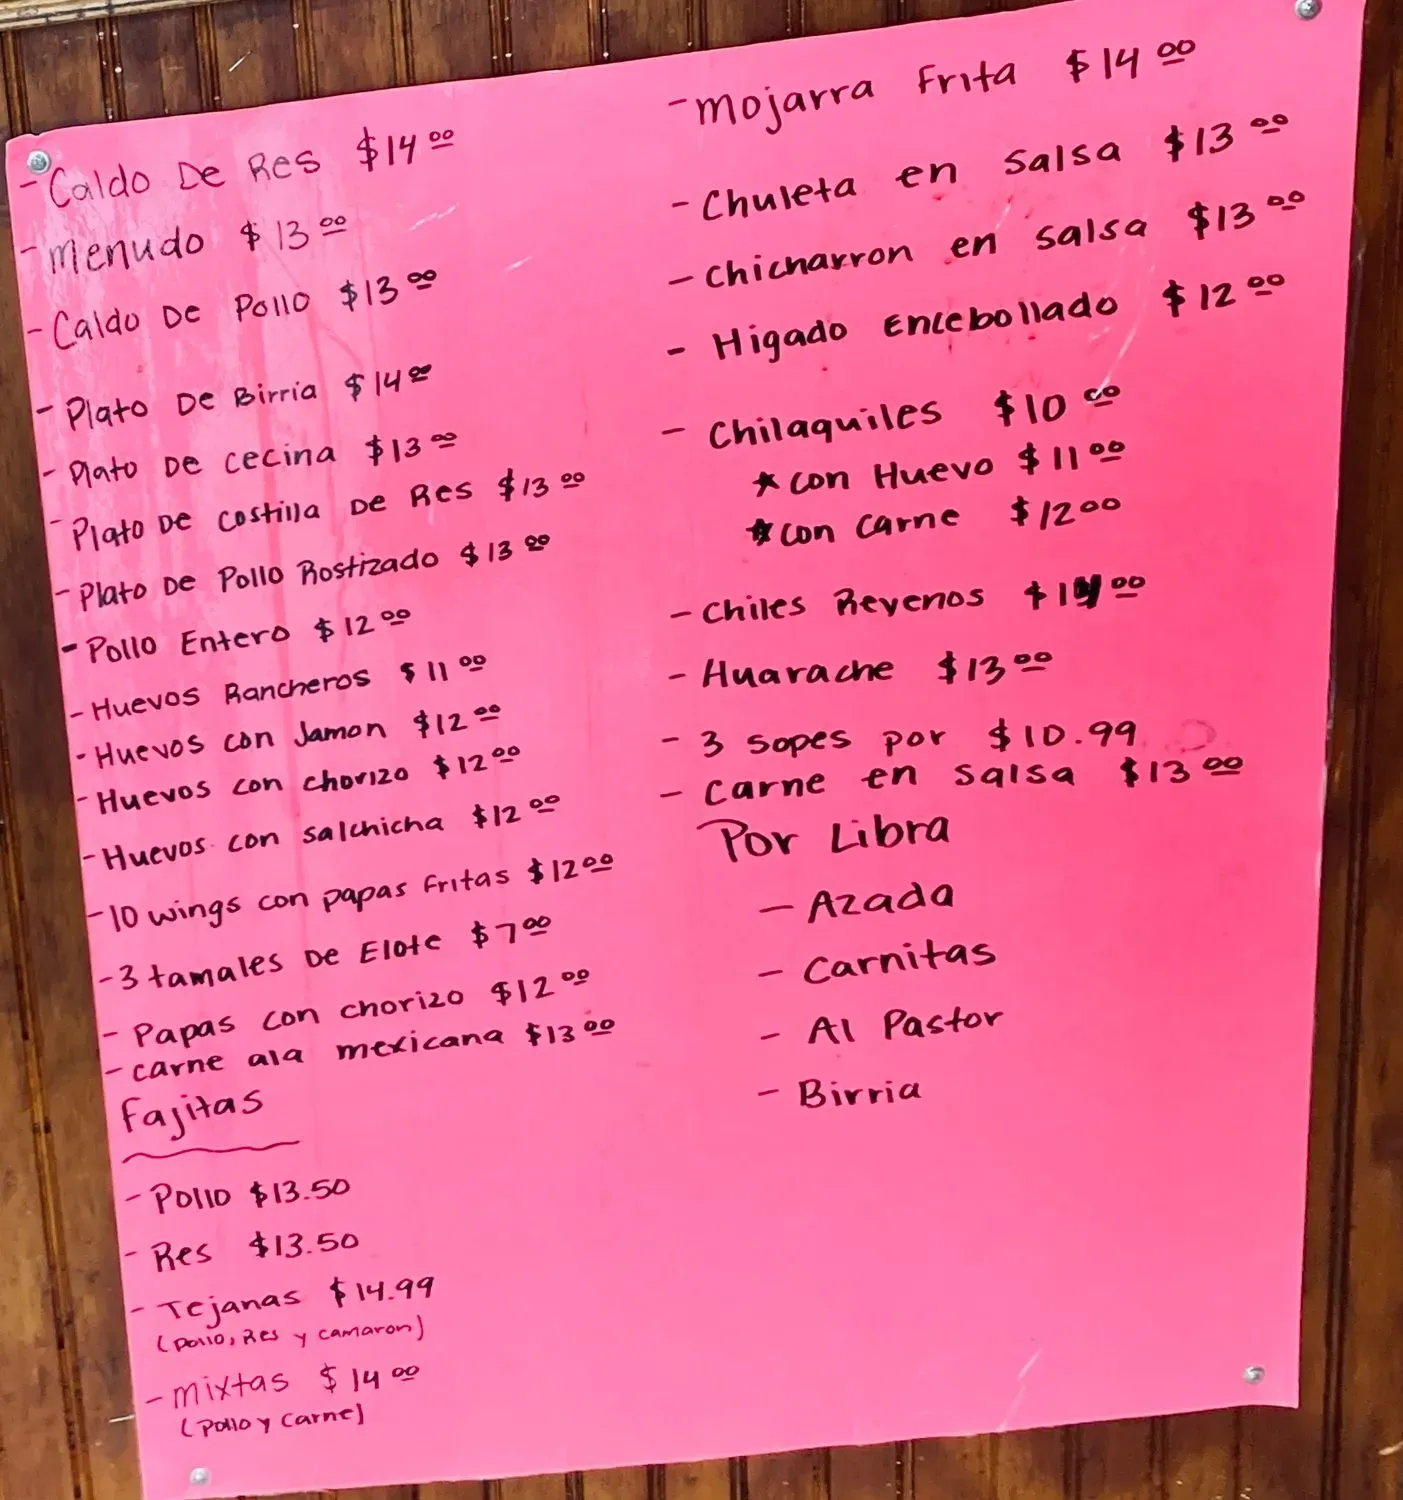 - Caldo De Res $14 00
- Menudo $13 00
- Caldo De Pollo $13 00
- Plato De Birria $14 00
- Plato De Cecina $13 00
- Plato De Costilla De Res $13 00
- Plato De Pollo Rostizado $13 00
- Pollo Entero $12 00
- Huevos Rancheros $11 00
- Huevos con Jamon $12 00
- Huevos con chorizo $12 00
- Huevos con salchicha $12 00
- 10 wings con papas Fritas $12 00
- 3 tamales De Elote $7 00
- Papas con chorizo $12 00
- carne ala mexicana $13 00
Fajitas
- Pollo $13.50
- Res $13.50
- Tejanas $14.99
(pollo, Res y camaron)
- mixtas $14 00
(Pollo y Carne)
- Mojarra Frita $14 00
- Chuleta en Salsa $13 00
- Chicharron en salsa $13 00
- Higado Encebollado $12 00
- Chilaquiles $10 00
* con Huevo $11 00
* con carne $12 00
- Chiles Reyenos
- Huarache $13 00
- 3 sopes por $10.99
- Carne en salsa $13 00
Por Libra
- Azada
- Carnitas
- Al Pastor
- Birria